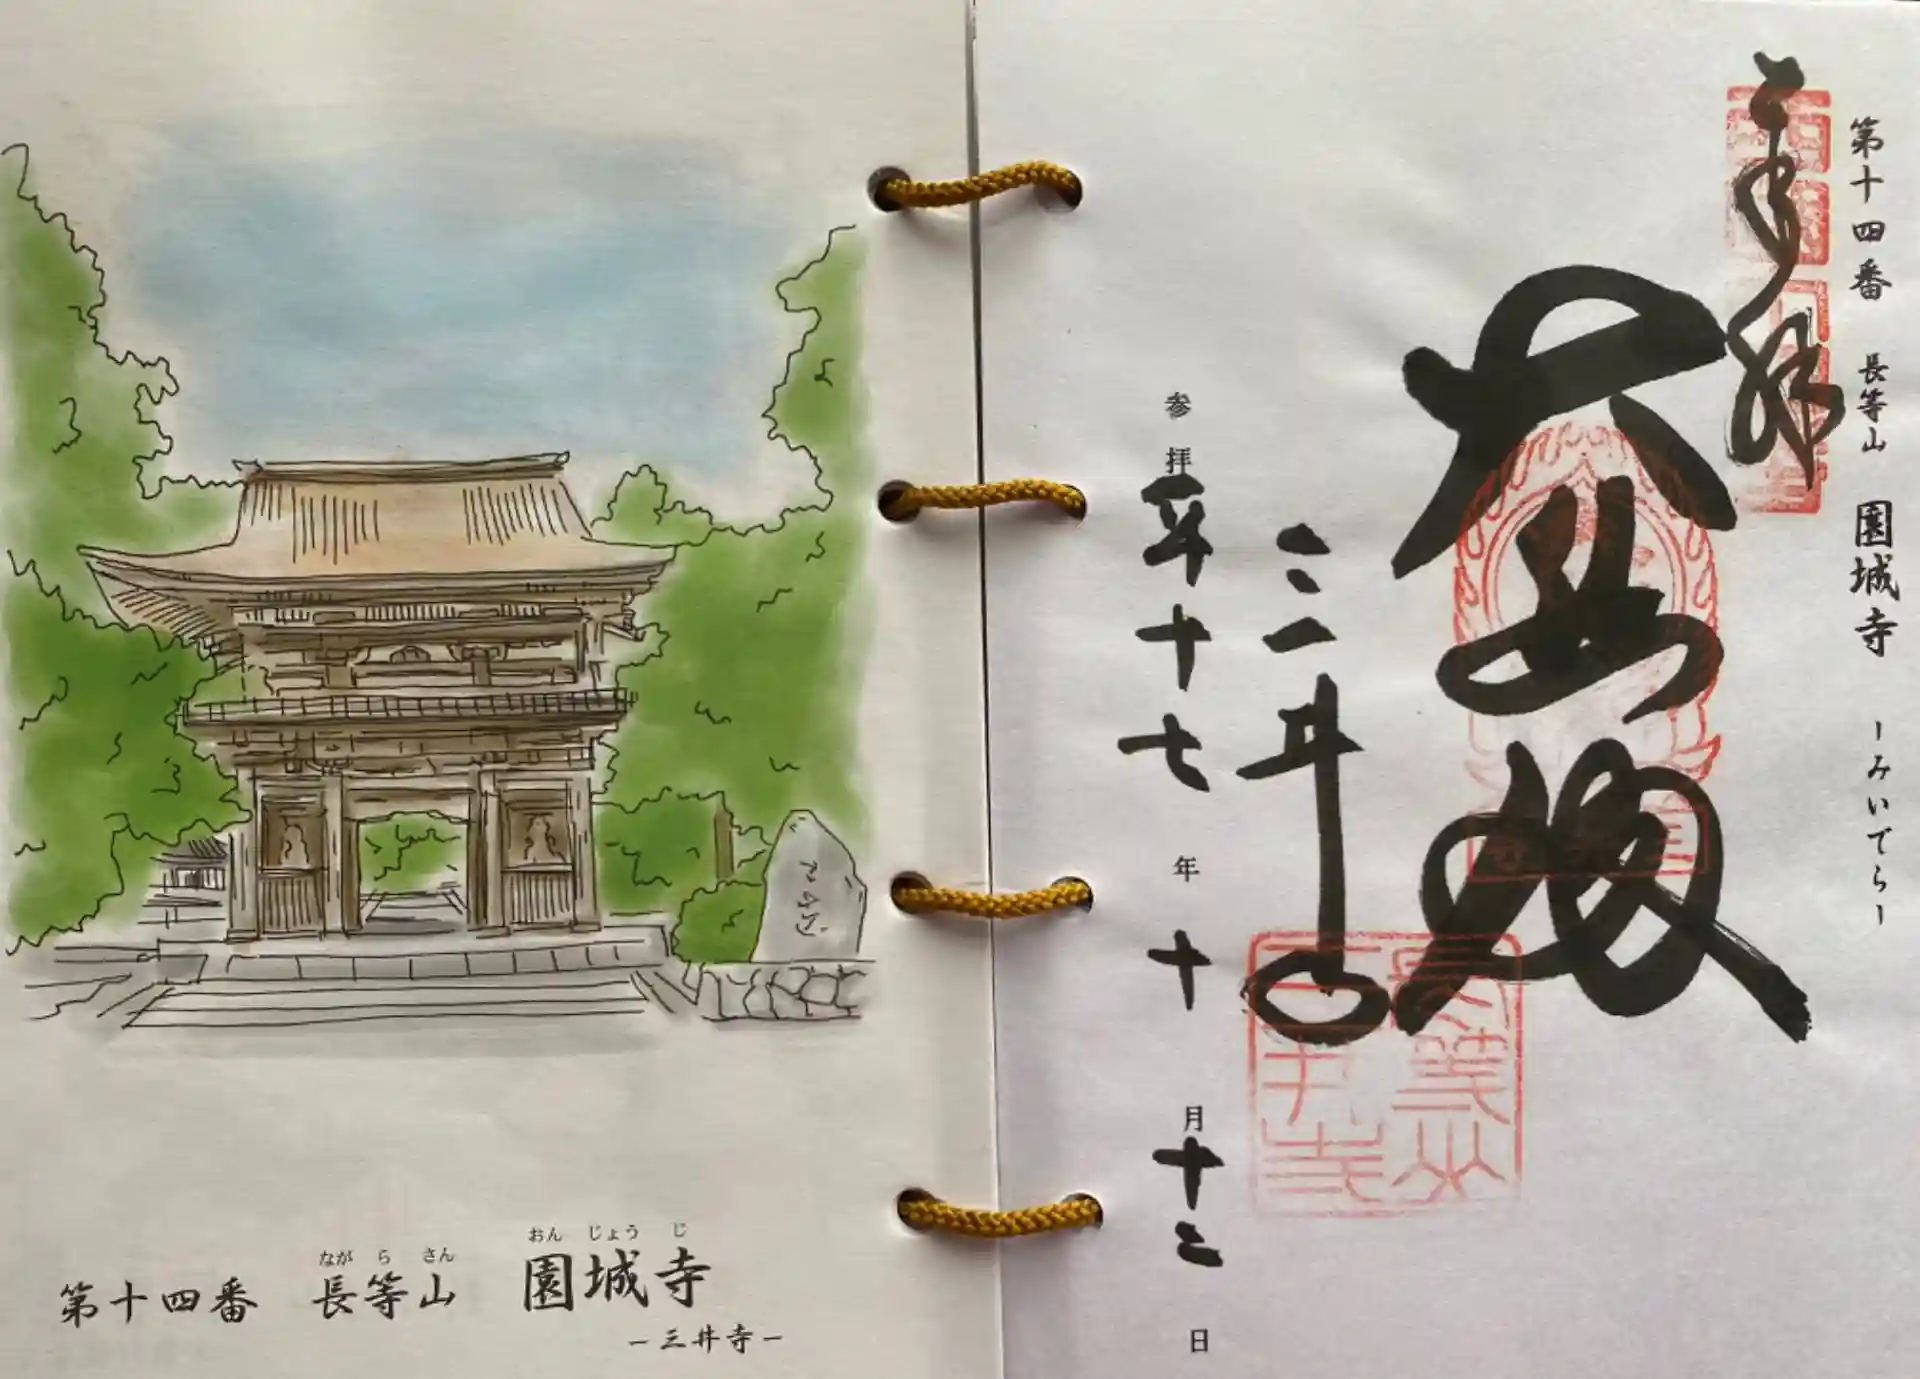 ながらさん おんじょうじ
第十四番 長等山 園城寺
－三井寺－
第十四番 長等山 園城寺 －みいでら－
奉拝
大悲殿
三井寺
参拝 平十七年十月十二日
長等山
三井寺